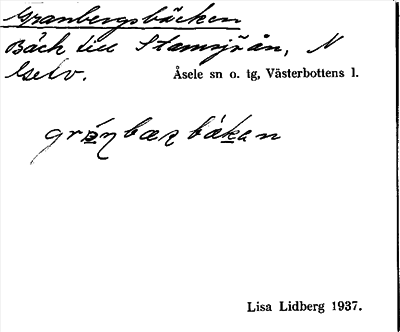 Granbergsbäcken
Bäck till Stamsjöån, N
Åsele sn o. tg, Västerbottens l.
Lisa Lidberg 1937.